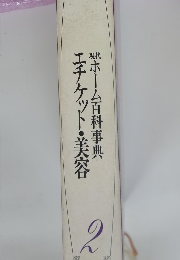 現代ホーム百科事典
エチケット・美容
2